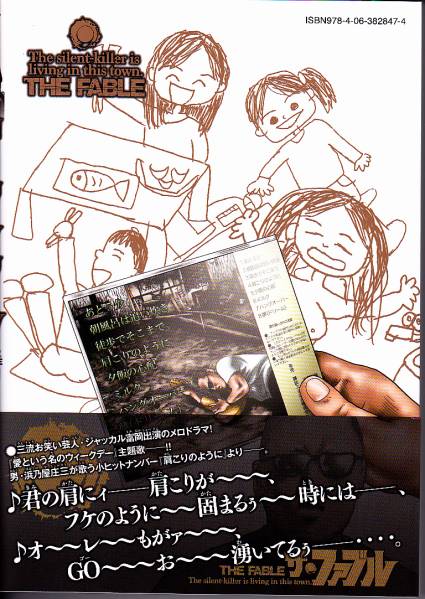 ISBN978-4-06-382847-4
The silent-killer is
living in this town.
THE FABLE
朝風呂は
徒歩でそこまで
肩こりのように
夕飯の心配
ミルク
ハングオーバー
●三流お笑い芸人・ジャッカル富岡出演のメロドラマ!
『愛という名のウィークデー』主題歌——!!
男・浜乃屋庄三が歌う小ヒットナンバー『肩こりのように』より——。
♪君の肩にィ——肩こりが〜〜〜、
フケのように〜〜固まるぅ〜〜時には——、
♪オ〜〜レ〜〜もがァ〜〜〜
GO〜〜〜お〜〜〜湧いてるぅ——・・・・。
THE FABLE ザ・ファブル
The silent-killer is living in this town.